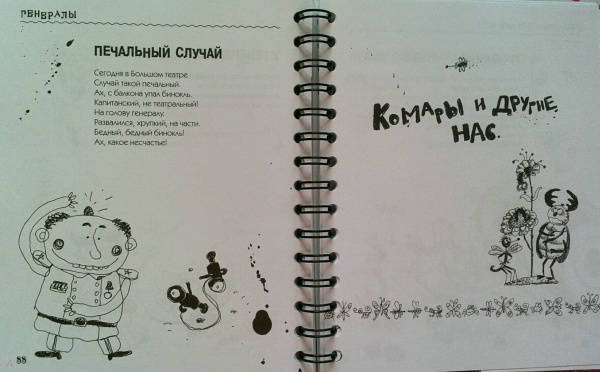 ГЕНЕРАЛЫ
ПЕЧАЛЬНЫЙ СЛУЧАЙ
Сегодня в Большом театре
Случай такой печальный.
Ах, с балкона упал бинокль.
Капитанский, не театральный!
На голову генералу.
Развалился, хрупкий, на части.
Бедный, бедный бинокль!
Ах, какое несчастье!
88
КОМАРЫ И ДРУГИЕ
НАС.